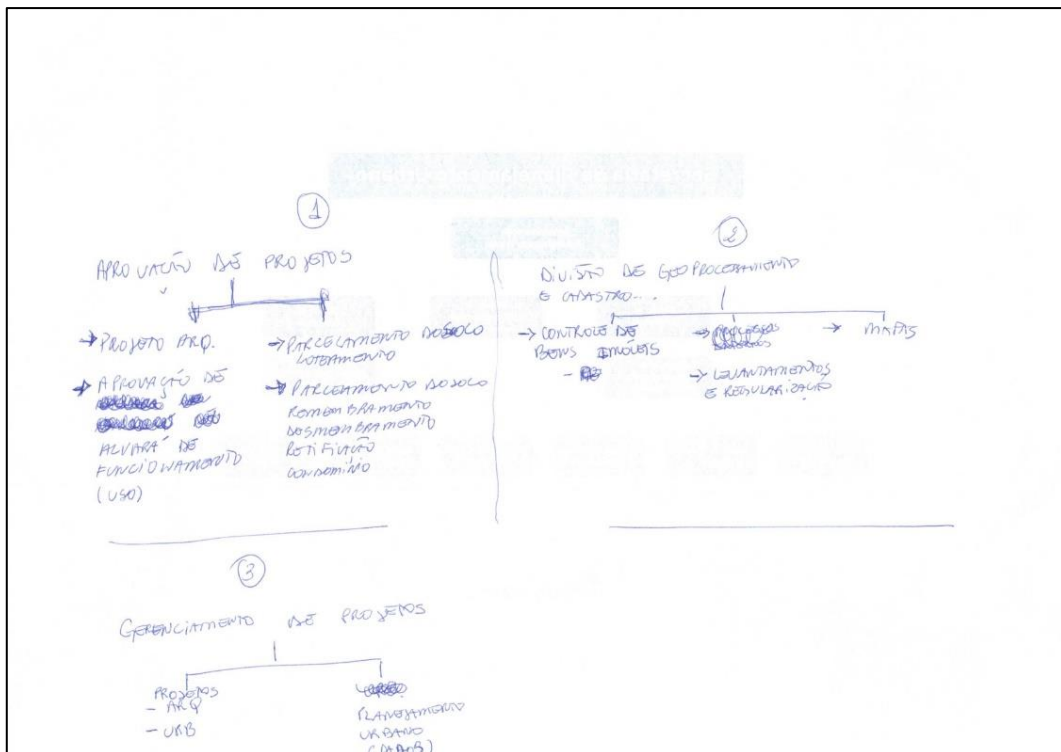 1
APROVAÇÃO DE PROJETOS
→ PROJETO ARQ.
→ APROVAÇÃO DE
ALVARÁ DE
FUNCIONAMENTO
(USO)
→ PARCELAMENTO DO SOLO
LOTEAMENTO
→ PARCELAMENTO DO SOLO
REMEMBRAMENTO
DESMEMBRAMENTO
RETIFICAÇÃO
CONDOMÍNIO
2
DIVISÃO DE GEOPROCESSAMENTO
E CADASTRO...
→ CONTROLE DE
BENS IMÓVEIS
-
→ LEVANTAMENTOS
E REGULARIZAÇÃO
→ MAPAS
3
GERENCIAMENTO DE PROJETOS
PROJETOS
- ARQ
- URB
PLANEJAMENTO
URBANO
Secretaria de Planejamento Urbano